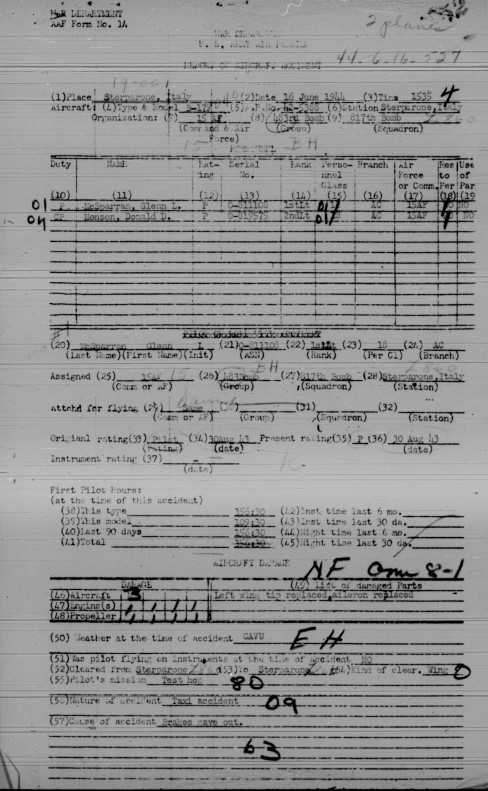 WAR DEPARTMENT
AAF Form No. 1A
2 planes
WAR DEPARTMENT
U. S. ARMY AIR FORCES
44-6-16-527
REPORT OF AIRCRAFT ACCIDENT
(1)Place Sterparone, Italy (2)Date 16 June 1944 (3)Time 1535 4
Aircraft: (4)Type & Model (5)A.F.No. (6)Station Sterparone, Italy
Organization: (7) 15 AF (8) 483rd Bomb (9) 817th Bomb
(Command & Air Force) (Group) (Squadron)
BH
Duty NAME Rat-ing Serial No. Rank Perso-nnel Class Branch Air Force or Comm. Res to Per Use of Par
(10) (11) (12) (13) (14) (15) (16) (17) (18) (19
01 P McSparran, Glenn L. P O-811108 1stLt 01 AC 15AF NO
04 CP Monson, Donald D. P O-819575 2ndLt 01 AC 15AF NO
(20) McSparran Glenn L (21) O-811108 (22) 1stLt (23) 18 (24) AC
(Last Name)(First Name)(Init) (ASN) (Rank) (Per Cl) (Branch)
BH
Assigned (25) 15AF (26) 483Bomb (27) 817th Bomb (28) Sterparone, Italy
(Comm or AF) (Group) (Squadron) (Station)
Attchd for flying (29) Same (30) (31) (32)
(Comm or AF) (Group) (Squadron) (Station)
Original rating(33) Pilot (34) 30Aug 43 Present rating(35) P (36) 30 Aug 43
(Rating) (date) (date)
Instrument rating (37)
(date)
First Pilot Hours:
(at the time of this accident)
(38)This type 156:30 (42)Inst time last 6 mo.
(39)This model 109:30 (43)Inst time last 30 da.
(40)Last 90 days (44)Night time last 6 mo.
(41)Total (45)Night time last 30 da.
AIRCRAFT DAMAGE
NF Om 8-1
DAMAGE (49) List of damaged Parts
(46)Aircraft 3 Left wing tip replaced, aileron replaced
(47)Engine(s)
(48)Propeller
(50) Weather at the time of accident CAVU EH
(51) Was pilot flying on instruments at the time of accident NO
(52)Cleared from Sterparone (53)To Sterparone (54)Kind of clear. Wing 0
(55)Pilot's mission Test hop 80
(56)Nature of accident Taxi accident 09
(57)Cause of accident Brakes gave out.
63